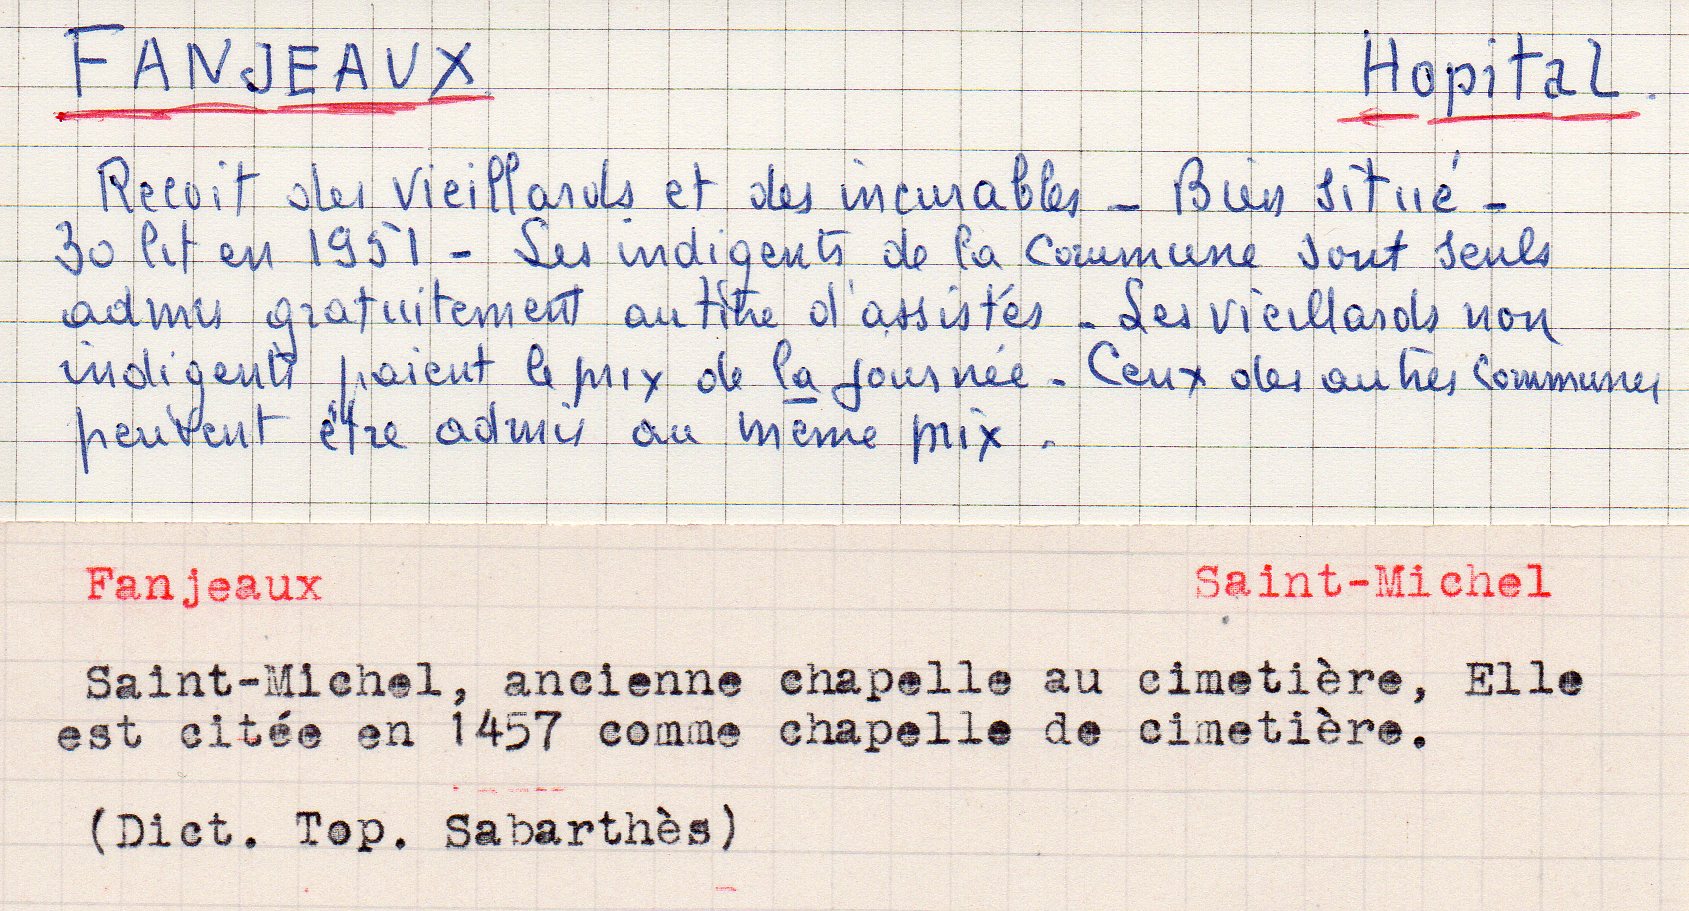 FANJEAUX Hopital.
Recoit des vieillards et des incurables - Bien situé -
30 lit en 1951 - Les indigents de la commune sont seuls
admis gratuitement au titre d'assistés - Les vieillards non
indigents paient le prix de la journée - Ceux des autres communes
peuvent être admis au même prix.
Fanjeaux Saint-Michel
Saint-Michel, ancienne chapelle au cimetière, Elle
est citée en 1457 comme chapelle de cimetière.
(Dict. Top. Sabarthès)